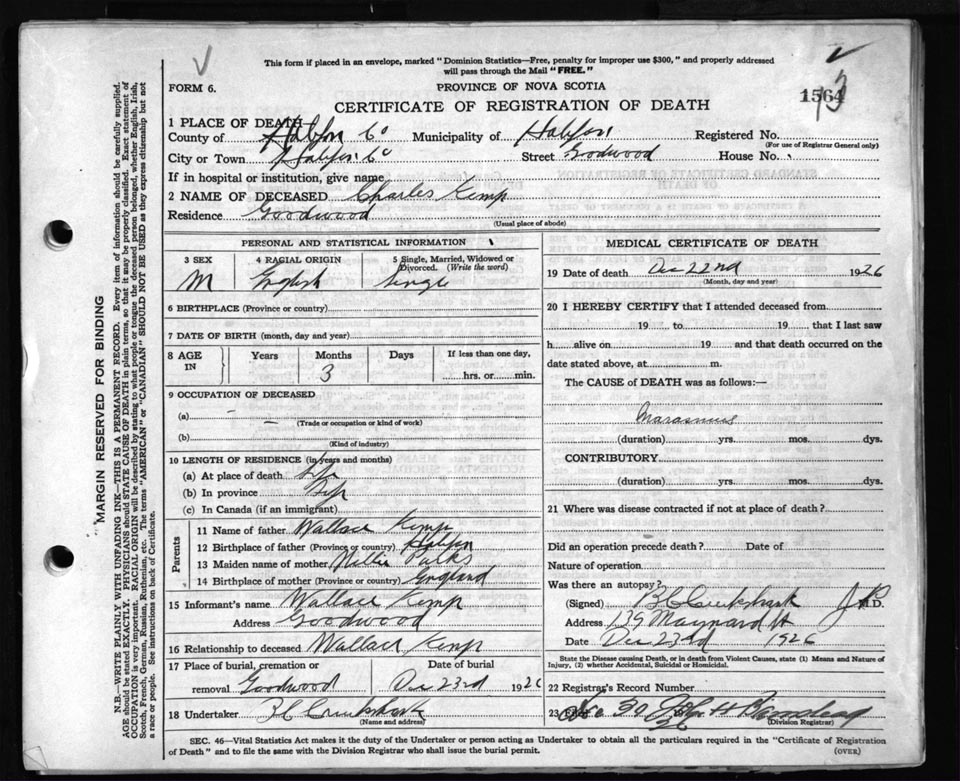 This form if placed in an envelope, marked "Dominion Statistics—Free, penalty for improper use $300," and properly addressed
will pass through the Mail "FREE."
FORM 6.
PROVINCE OF NOVA SCOTIA
CERTIFICATE OF REGISTRATION OF DEATH
1564
1 PLACE OF DEATH
County of Halifax Co Municipality of Halifax Registered No.
(For use of Registrar General only)
City or Town Halifax Co Street Goodwood House No.
If in hospital or institution, give name
2 NAME OF DECEASED Charles Kemp
Residence Goodwood
(Usual place of abode)
PERSONAL AND STATISTICAL INFORMATION
3 SEX
M
4 RACIAL ORIGIN
English
5 Single, Married, Widowed or
Divorced. (Write the word)
Single
6 BIRTHPLACE (Province or country)
7 DATE OF BIRTH (month, day and year)
8 AGE
IN
Years Months Days If less than one day,
3 hrs. or min.
9 OCCUPATION OF DECEASED
(a) –
(Trade or occupation or kind of work)
(b)
(Kind of industry)
10 LENGTH OF RESIDENCE (in years and months)
(a) At place of death
(b) In province
(c) In Canada (if an immigrant)
Parents
11 Name of father Wallace Kemp
12 Birthplace of father (Province or country) Halifax
13 Maiden name of mother Nellie Parks
14 Birthplace of mother (Province or country) England
15 Informant's name Wallace Kemp
Address Goodwood
16 Relationship to deceased Wallace Kemp
17 Place of burial, cremation or
removal Goodwood
Date of burial
Dec 23rd 1926
18 Undertaker B C Cruikshank
(Name and address)
MEDICAL CERTIFICATE OF DEATH
19 Date of death Dec 22nd 1926
(Month, day and year)
20 I HEREBY CERTIFY that I attended deceased from
19 to 19 that I last saw
h alive on 19 and that death occurred on the
date stated above, at m.
The CAUSE of DEATH was as follows:—
Marasmus
(duration) yrs. mos. dys.
CONTRIBUTORY
(duration) yrs. mos. dys.
21 Where was disease contracted if not at place of death?
Did an operation precede death? Date of
Nature of operation
Was there an autopsy?
(Signed) B C Cruikshank M.D.
Address 139 Maynard St
Date Dec 23rd 1926
State the Disease causing Death, or in death from Violent Causes, state (1) Means and Nature of
Injury, (2) whether Accidental, Suicidal or Homicidal.
22 Registrar's Record Number
23 Filed Dec 30
(Division Registrar)
SEC. 46—Vital Statistics Act makes it the duty of the Undertaker or person acting as Undertaker to obtain all the particulars required in the "Certificate of Registration
of Death" and to file the same with the Division Registrar who shall issue the burial permit.
(OVER)
MARGIN RESERVED FOR BINDING
N.B.—WRITE PLAINLY WITH UNFADING INK—THIS IS A PERMANENT RECORD. Every item of information should be carefully supplied.
AGE should be stated EXACTLY. PHYSICIANS should STATE CAUSE OF DEATH in plain terms, so that it may be properly classified. Exact statement of
OCCUPATION is very important. RACIAL ORIGIN will be described by stating to what people or tongue the deceased person belonged, whether English, Irish,
Scotch, French, German, Russian, Ruthenian, etc. The terms "AMERICAN" or "CANADIAN" SHOULD NOT BE USED as they express citizenship but not
a race or people. See instructions on back of Certificate.